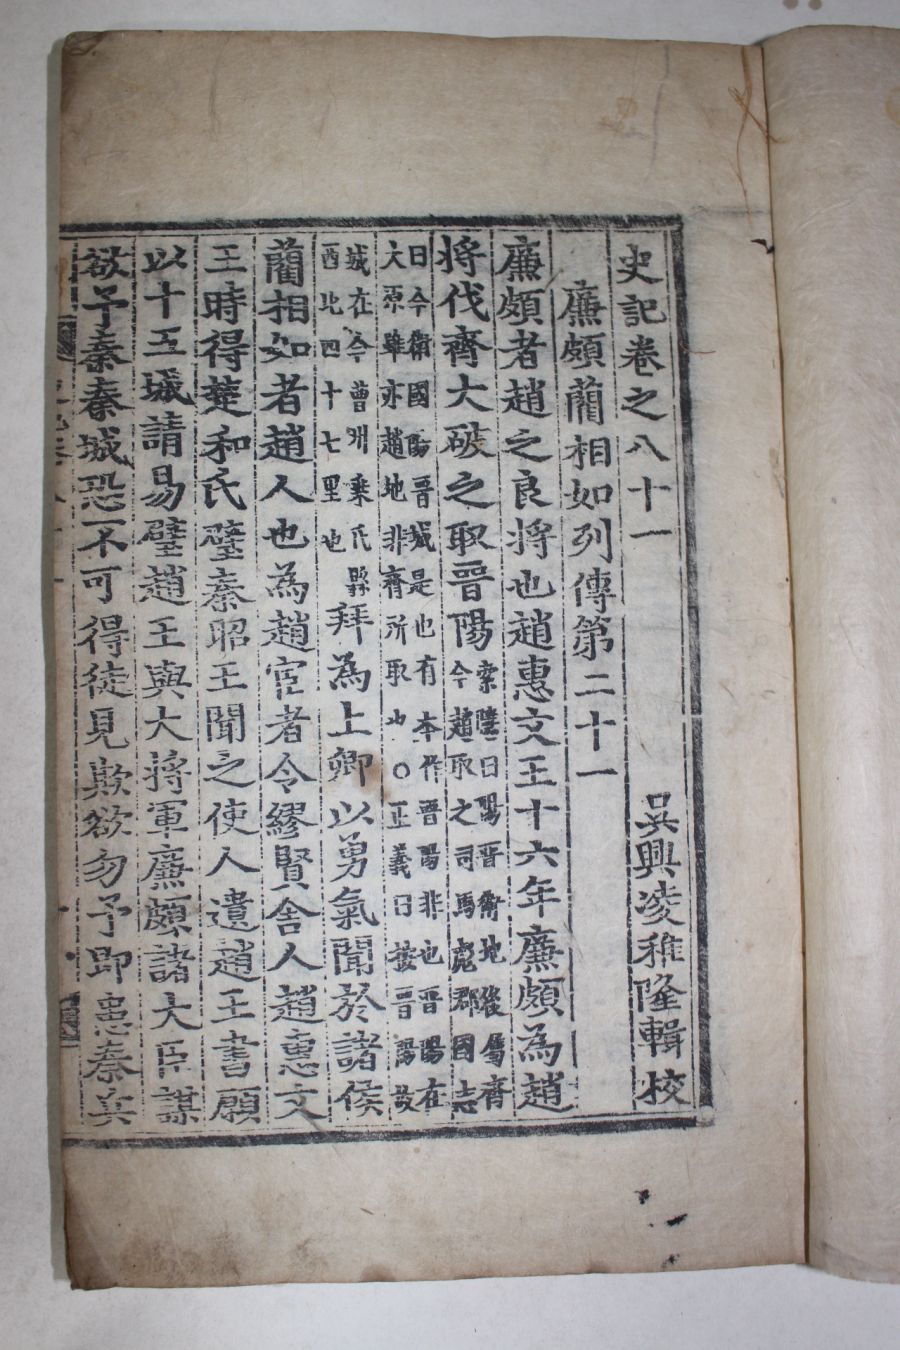 史記卷之八十一　吳興凌稚隆輯校
廉頗藺相如列傳第二十一
廉頗者趙之良將也趙惠文王十六年廉頗為趙
將伐齊大破之取晉陽
索隱曰陽晉衛地後屬齊
今趙取之司馬彪郡國志
曰今衛國陽晉城是也有本作晉陽非也晉陽在
大原雖亦趙地非齊所取也○正義曰按晉陽故
城在今曹州乘氏縣
西北四十七里也
拜為上卿以勇氣聞於諸侯
藺相如者趙人也為趙宦者令繆賢舍人趙惠文
王時得楚和氏璧秦昭王聞之使人遺趙王書願
以十五城請易璧趙王與大將軍廉頗諸大臣謀
欲予秦秦城恐不可得徒見欺欲勿予即患秦兵